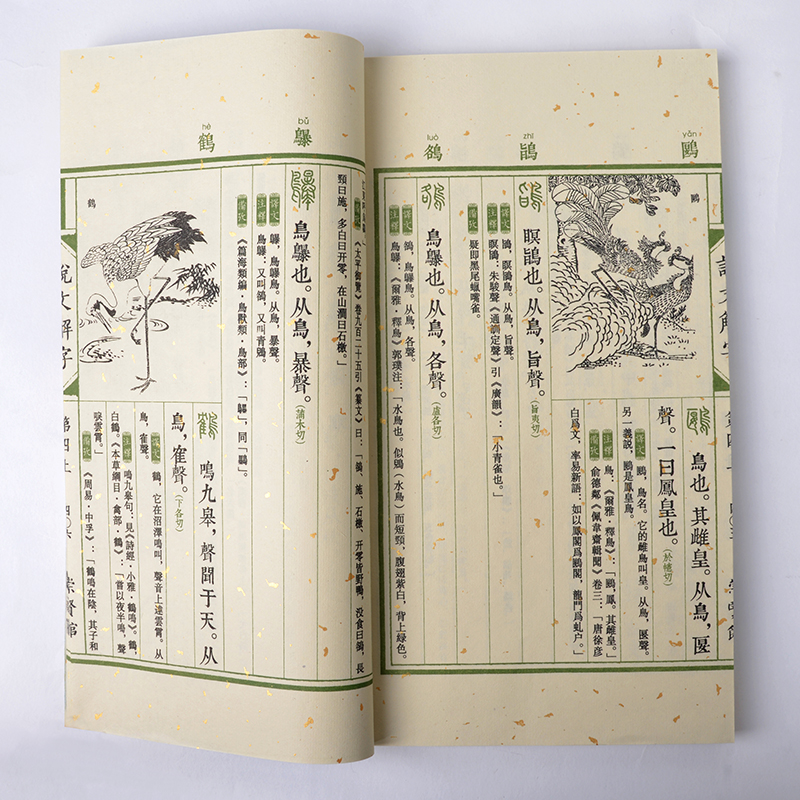 yǎn
鶠
zhī
鴲
luò
鵅
鶠
鳥也。其雌皇。从鳥，匽
聲。一曰鳳皇也。(於幰切)
譯文 鶠，鳥名。它的雌鳥叫皇。从鳥，匽聲。
另一義說，鶠是鳳皇鳥。
注釋 鳥：《爾雅·釋鳥》：「鶠，鳳。其雌皇。」
備攷 俞德鄰《佩韋齋輯聞》卷三：「唐徐彥
伯爲文，率易新語：如以鳳閣爲鶠閣，龍門爲虬户。」
瞑鴲也。从鳥，旨聲。(旨夷切)
譯文 鴲，瞑鴲鳥。从鳥，旨聲。
注釋 瞑鴲：朱駿聲《通訓定聲》引《廣韻》：「小青雀也。」
備攷 疑即黑尾蠟嘴雀。
鳥鸔也。从鳥，各聲。(盧各切)
譯文 鵅，鳥鸔鳥。从鳥，各聲。
注釋 鳥鸔：《爾雅·釋鳥》郭璞注：「水鳥也。似鶂(水鳥)而短頸，腹翅紫白，背上綠色。
說文解字
第四上
bǔ
鸔
hè
鶴
備攷 《太平御覽》卷九百二十五引《纂文》曰：「鵅、施、石檄、开零皆野鴨，没食曰鵅，長
頸曰施，多白曰开零，在山澗曰石檄。」
鳥鸔也。从鳥，暴聲。(蒲木切)
譯文 鸔，鳥鸔鳥。从鳥，暴聲。
注釋 鳥鸔：又叫鵅，又叫青鶂。
備攷 《篇海類編·鳥獸類·鳥部》：「鸔，同『鸔』。」
鶴
鳴九皋，聲聞于天。从
鳥，隺聲。(下各切)
譯文 鶴，它在沼澤鳴叫，聲音上達雲霄。从
鳥，隺聲。
注釋 鳴九皋句：見《詩經·小雅·鶴鳴》。鶴：
白鶴。《本草綱目·禽部·鶴》：「嘗以夜半鳴，聲
唳雲霄。」
備攷 《周易·中孚》：「鶴鳴在陰，其子和
說文解字
第四上
四〇六
崇賢館